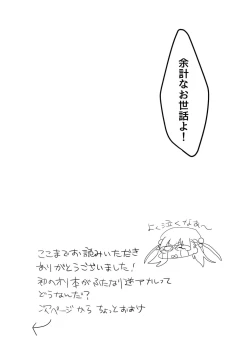 余計なお世話よ!
よく泣くなあ〜
ここまでお読みいただき
ありがとうございました!
初のオリ本がふたなり逆アナルって
どうなんだ?
次ページから ちょっとおまけ